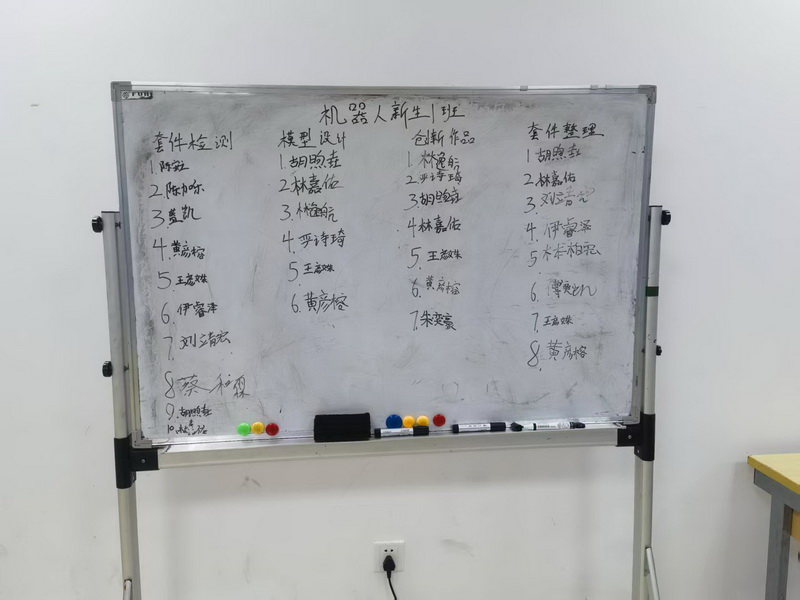 机器人新生1班
套件检测
2.陈力尔
3.盖凯
4.黄彦榕
5.王彦姝
6.伊睿泽
7.刘靖宏
8.蔡
9.胡煦垚
10.
模型设计
1.胡煦垚
2.林嘉佑
3.林逸航
4.严诗琦
5.王彦姝
6.黄彦榕
创新作品
1.林逸航
2.严诗琦
3.胡煦垚
4.林嘉佑
5.王彦姝
6.黄彦榕
7.朱奕豪
套件整理
1.胡煦垚
2.林嘉佑
3.刘靖宏
4.伊睿泽
5.
6.
7.王彦姝
8.黄彦榕